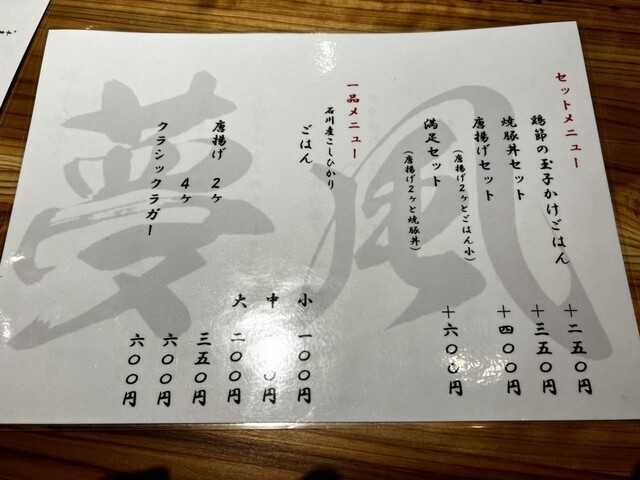 夢風
セットメニュー
鶏節の玉子かけごはん +二五〇円
焼豚丼セット +三五〇円
唐揚げセット +四〇〇円
(唐揚げ2ヶとごはん小)
満足セット +六〇〇円
(唐揚げ2ヶと焼豚丼)
一品メニュー
石川産こしひかり
ごはん 小 一〇〇円
中 〇円
大 二〇〇円
唐揚げ 2ヶ 三五〇円
4ヶ 六〇〇円
クラシックラガー 六〇〇円